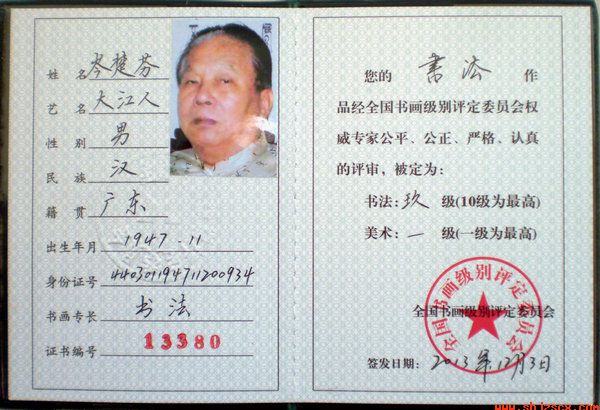 姓名 岑楚芬
艺名 大江人
性别 男
民族 汉
籍贯 广东
出生年月 1947-11
身份证号 440301194711200934
书画专长 书法
证书编号 13380
您的 书法 作
品经全国书画级别评定委员会权
威专家公平、公正、严格、认真
的评审，被定为：
书法：玖 级(10级为最高)
美术：一 级(一级为最高)
全国书画级别评定委员会
全国书画级别评定委员会
签发日期：2013年12月3日